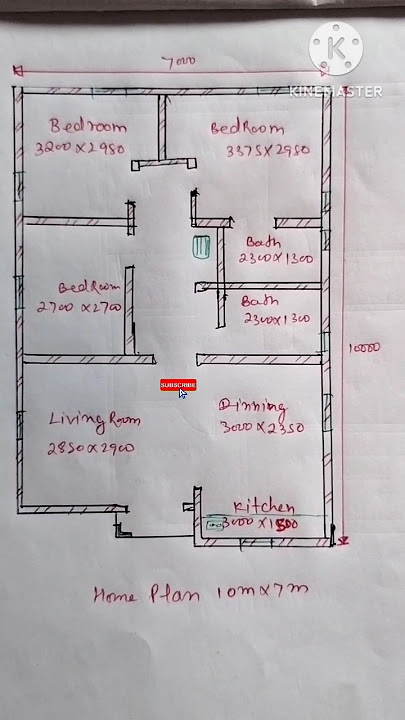 7000
KINEMASTER
Bedroom
3200 x 2950
BedRoom
3375 x 2950
Bath
2300 x 1300
BedRoom
2700 x 2700
Bath
2300 x 1300
10000
SUBSCRIBE
Living Room
2850 x 2900
Dinning
3000 x 2350
Kitchen
3000 x 1500
Home Plan 10m x 7m